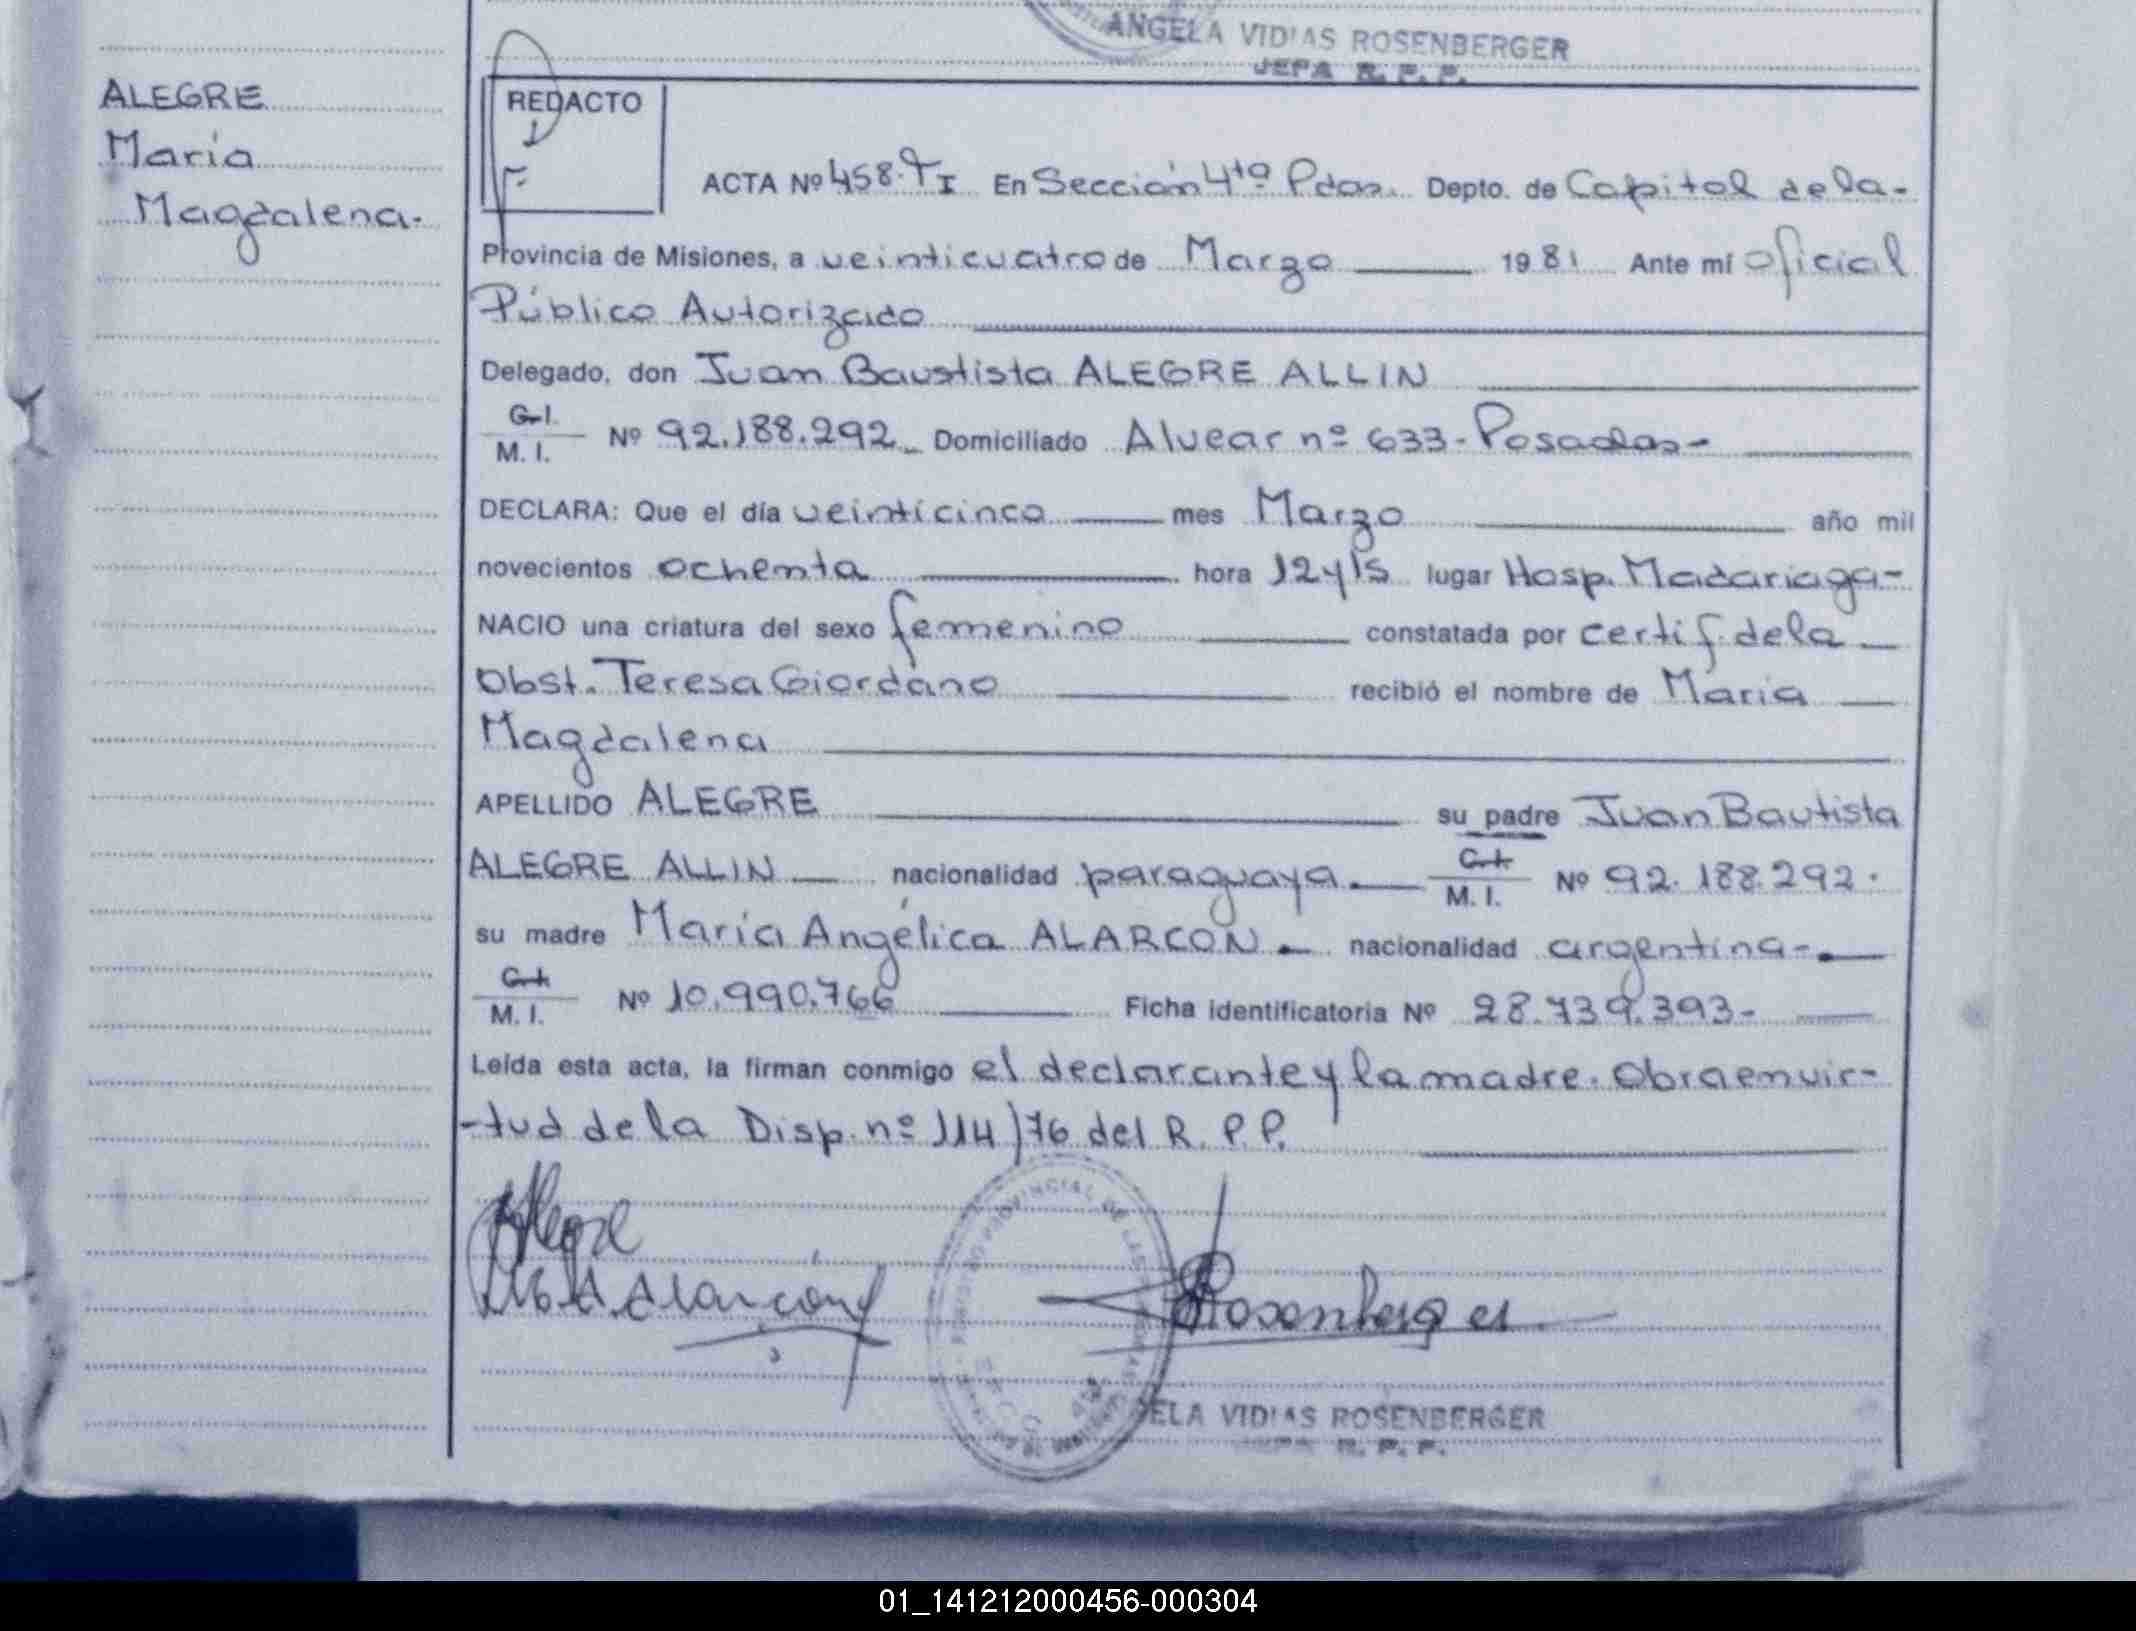 ANGELA VIDIAS ROSENBERGER
JEFA R. P. P.
ALEGRE
María
Magdalena.
REDACTO
ACTA Nº 458. TI En Sección 4ta Pdas. Depto. de Capital de la-
Provincia de Misiones, a veinticuatro de Marzo 1981 Ante mí oficial
Público Autorizado
Delegado, don Juan Baustista ALEGRE ALLIN
C.I.
M. I. Nº 92.188.292_ Domiciliado Alvear nº 633-Posadas-
DECLARA: Que el día veinticinco mes Marzo año mil
novecientos ochenta hora 12 y 15 lugar Hosp. Madariaga-
NACIO una criatura del sexo femenino constatada por certif. de la
Obst. Teresa Giordano recibió el nombre de María
Magdalena
APELLIDO ALEGRE su padre Juan Bautista
ALEGRE ALLIN nacionalidad paraguaya. C.I.
M. I. Nº 92.188.292.
su madre María Angélica ALARCON. nacionalidad argentina-.
C.I.
M. I. Nº 10.990.766 Ficha identificatoria Nº 28.739.393-
Leída esta acta, la firman conmigo el declarante y la madre. Obra en vir-
-tud de la Disp. nº 114/76 del R. P. P.
Alegre
A. Alarcón
Rosenberger
REGISTRO PROVINCIAL DE LAS PERSONAS
ELA VIDIAS ROSENBERGER
JEFA R. P. P.
01_141212000456-000304